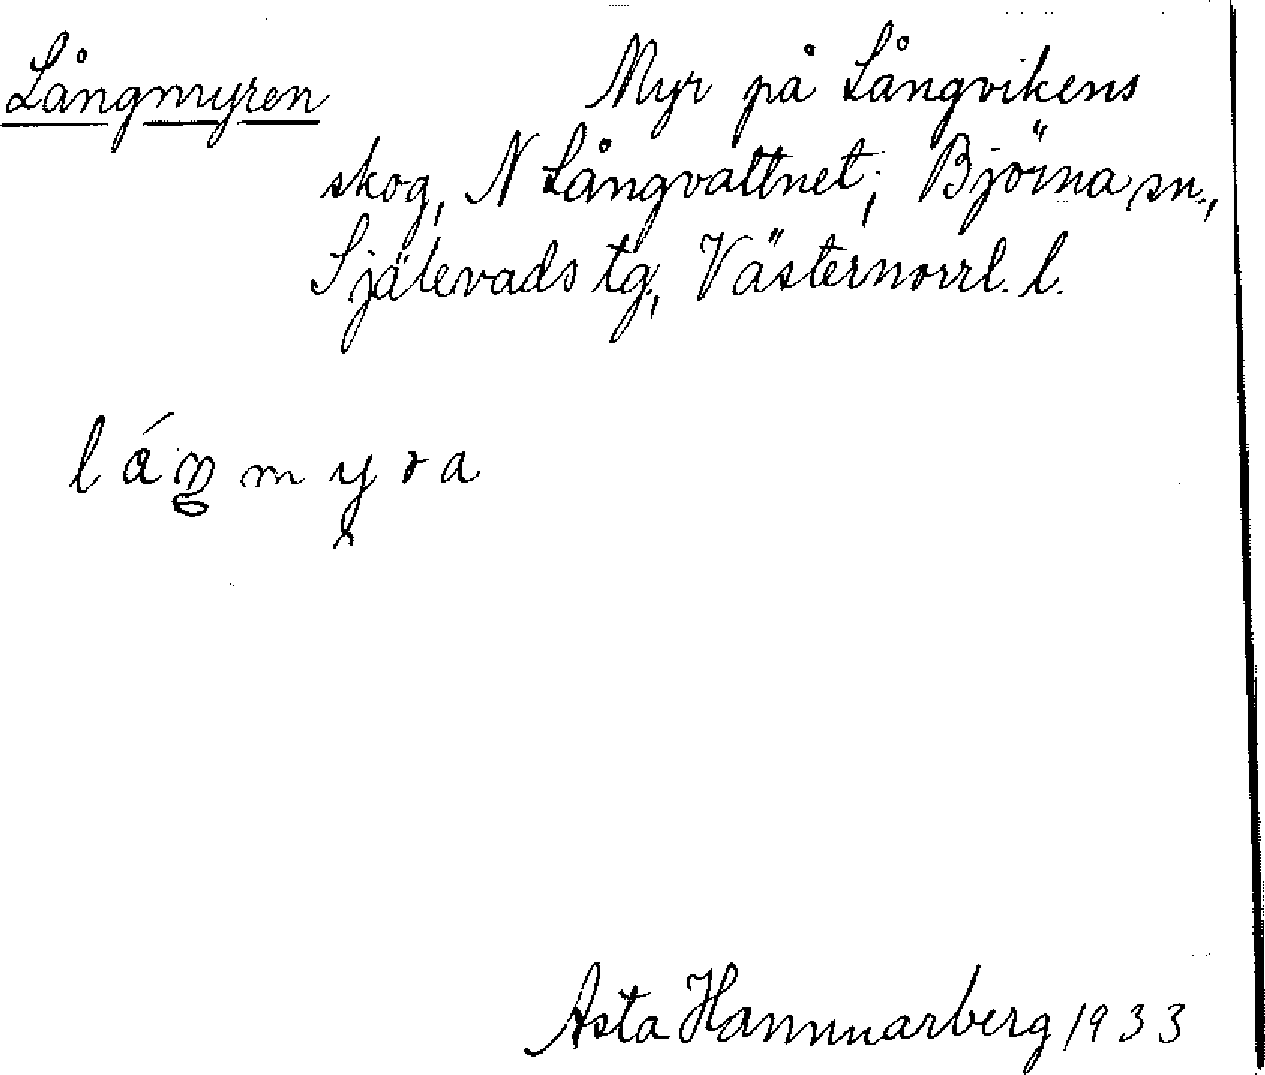 Långmyren Myr på Långvikens
skog, N Långvattnet; Björna sn.,
Själevads tg., Västernorrl. l.
láŋmyra
Asta Hammarberg 1933